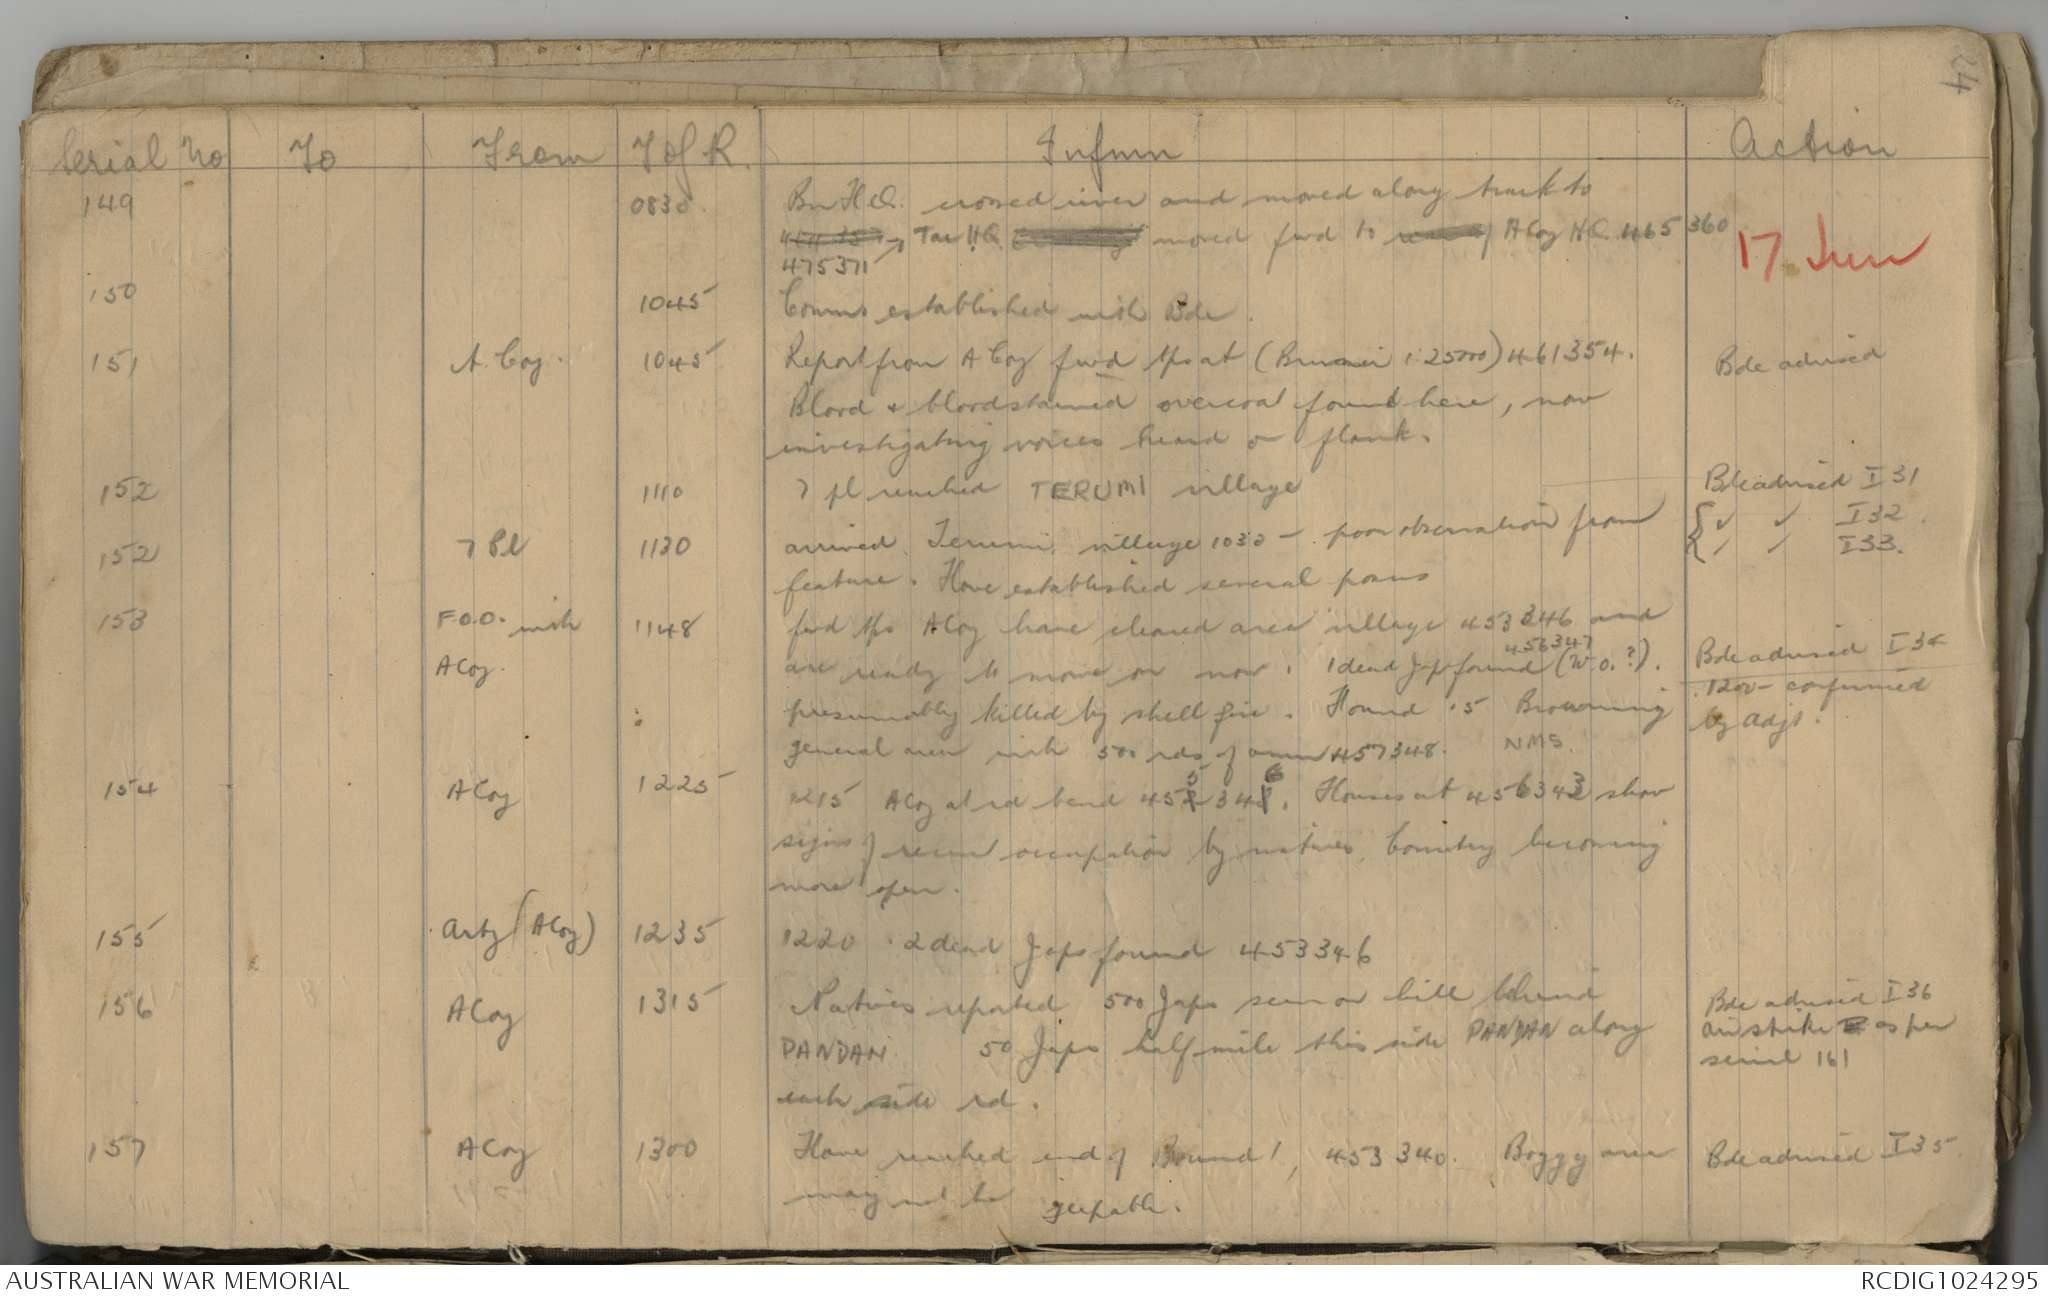 24
Serial No To From T of R. Infmn Action
149 0830. Bn H.Q. crossed river and moved along track to
Tac HQ. moved fwd to A Coy HQ. 465360
475371
17 Jun
150 1045 Comms established with Bde.
151 A. Coy. 1045 Report from A Coy fwd tps at (Brunei 1:25000) 461354. Bde advised
Blood & bloodstained overcoat found here, now
investigating voices heard on flank.
152 1110 7 pl reached TERUMI village Bde advised I31
152 7 Pl 1130 arrived Terumi village 1030 - poor observation from { ✓ ✓ I32.
feature. Have established several posns ✓ ✓ I33.
153 F.O.O. with 1148 fwd tps A Coy have cleared area village 453346 and
456347
A Coy. are ready to move on now. 1 dead Jap found (W.O.?). Bde advised I34
presumably killed by shell fire. Found .5 Browning 1200 - confirmed
general area with 500 rds of amn 457348. NMS. by Adjt.
5 6
154 A Coy 1225 1215 A Coy at rd bend 45 34 . Houses at 456343 show
signs of recent occupation by natives. Country becoming
more open.
155 Arty (A Coy) 1235 1220 . 2 dead Japs found 453346
156 A Coy 1315 Natives reported 500 Japs seen on hill behind Bde advised I36
PANDAN. 50 Japs half mile this side PANDAN along airstrike as per
each side rd. serial 161
157 A Coy 1300 Have reached end of Bound 1, 453340. Boggy area Bde advised I35.
may not be jeepable.
AUSTRALIAN WAR MEMORIAL RCDIG1024295